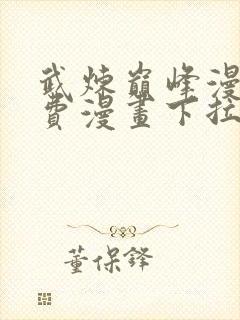 武炼巅峰漫
费漫画下拉
董保铎